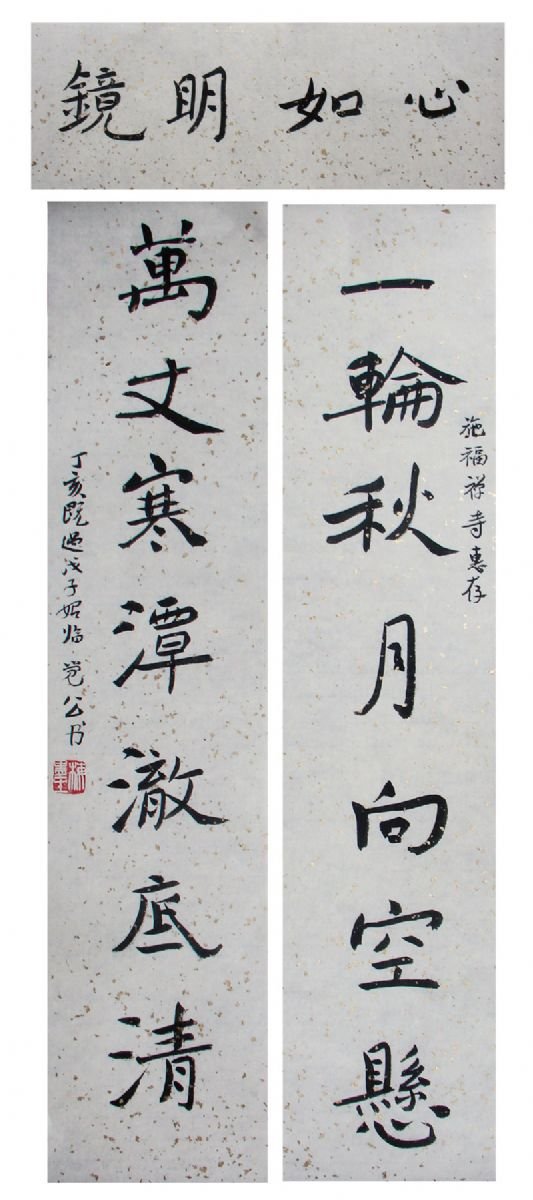 心如明鏡
施福禅寺惠存
一輪秋月向空懸
萬丈寒潭澈底清
丁亥既過戊子始临 公书